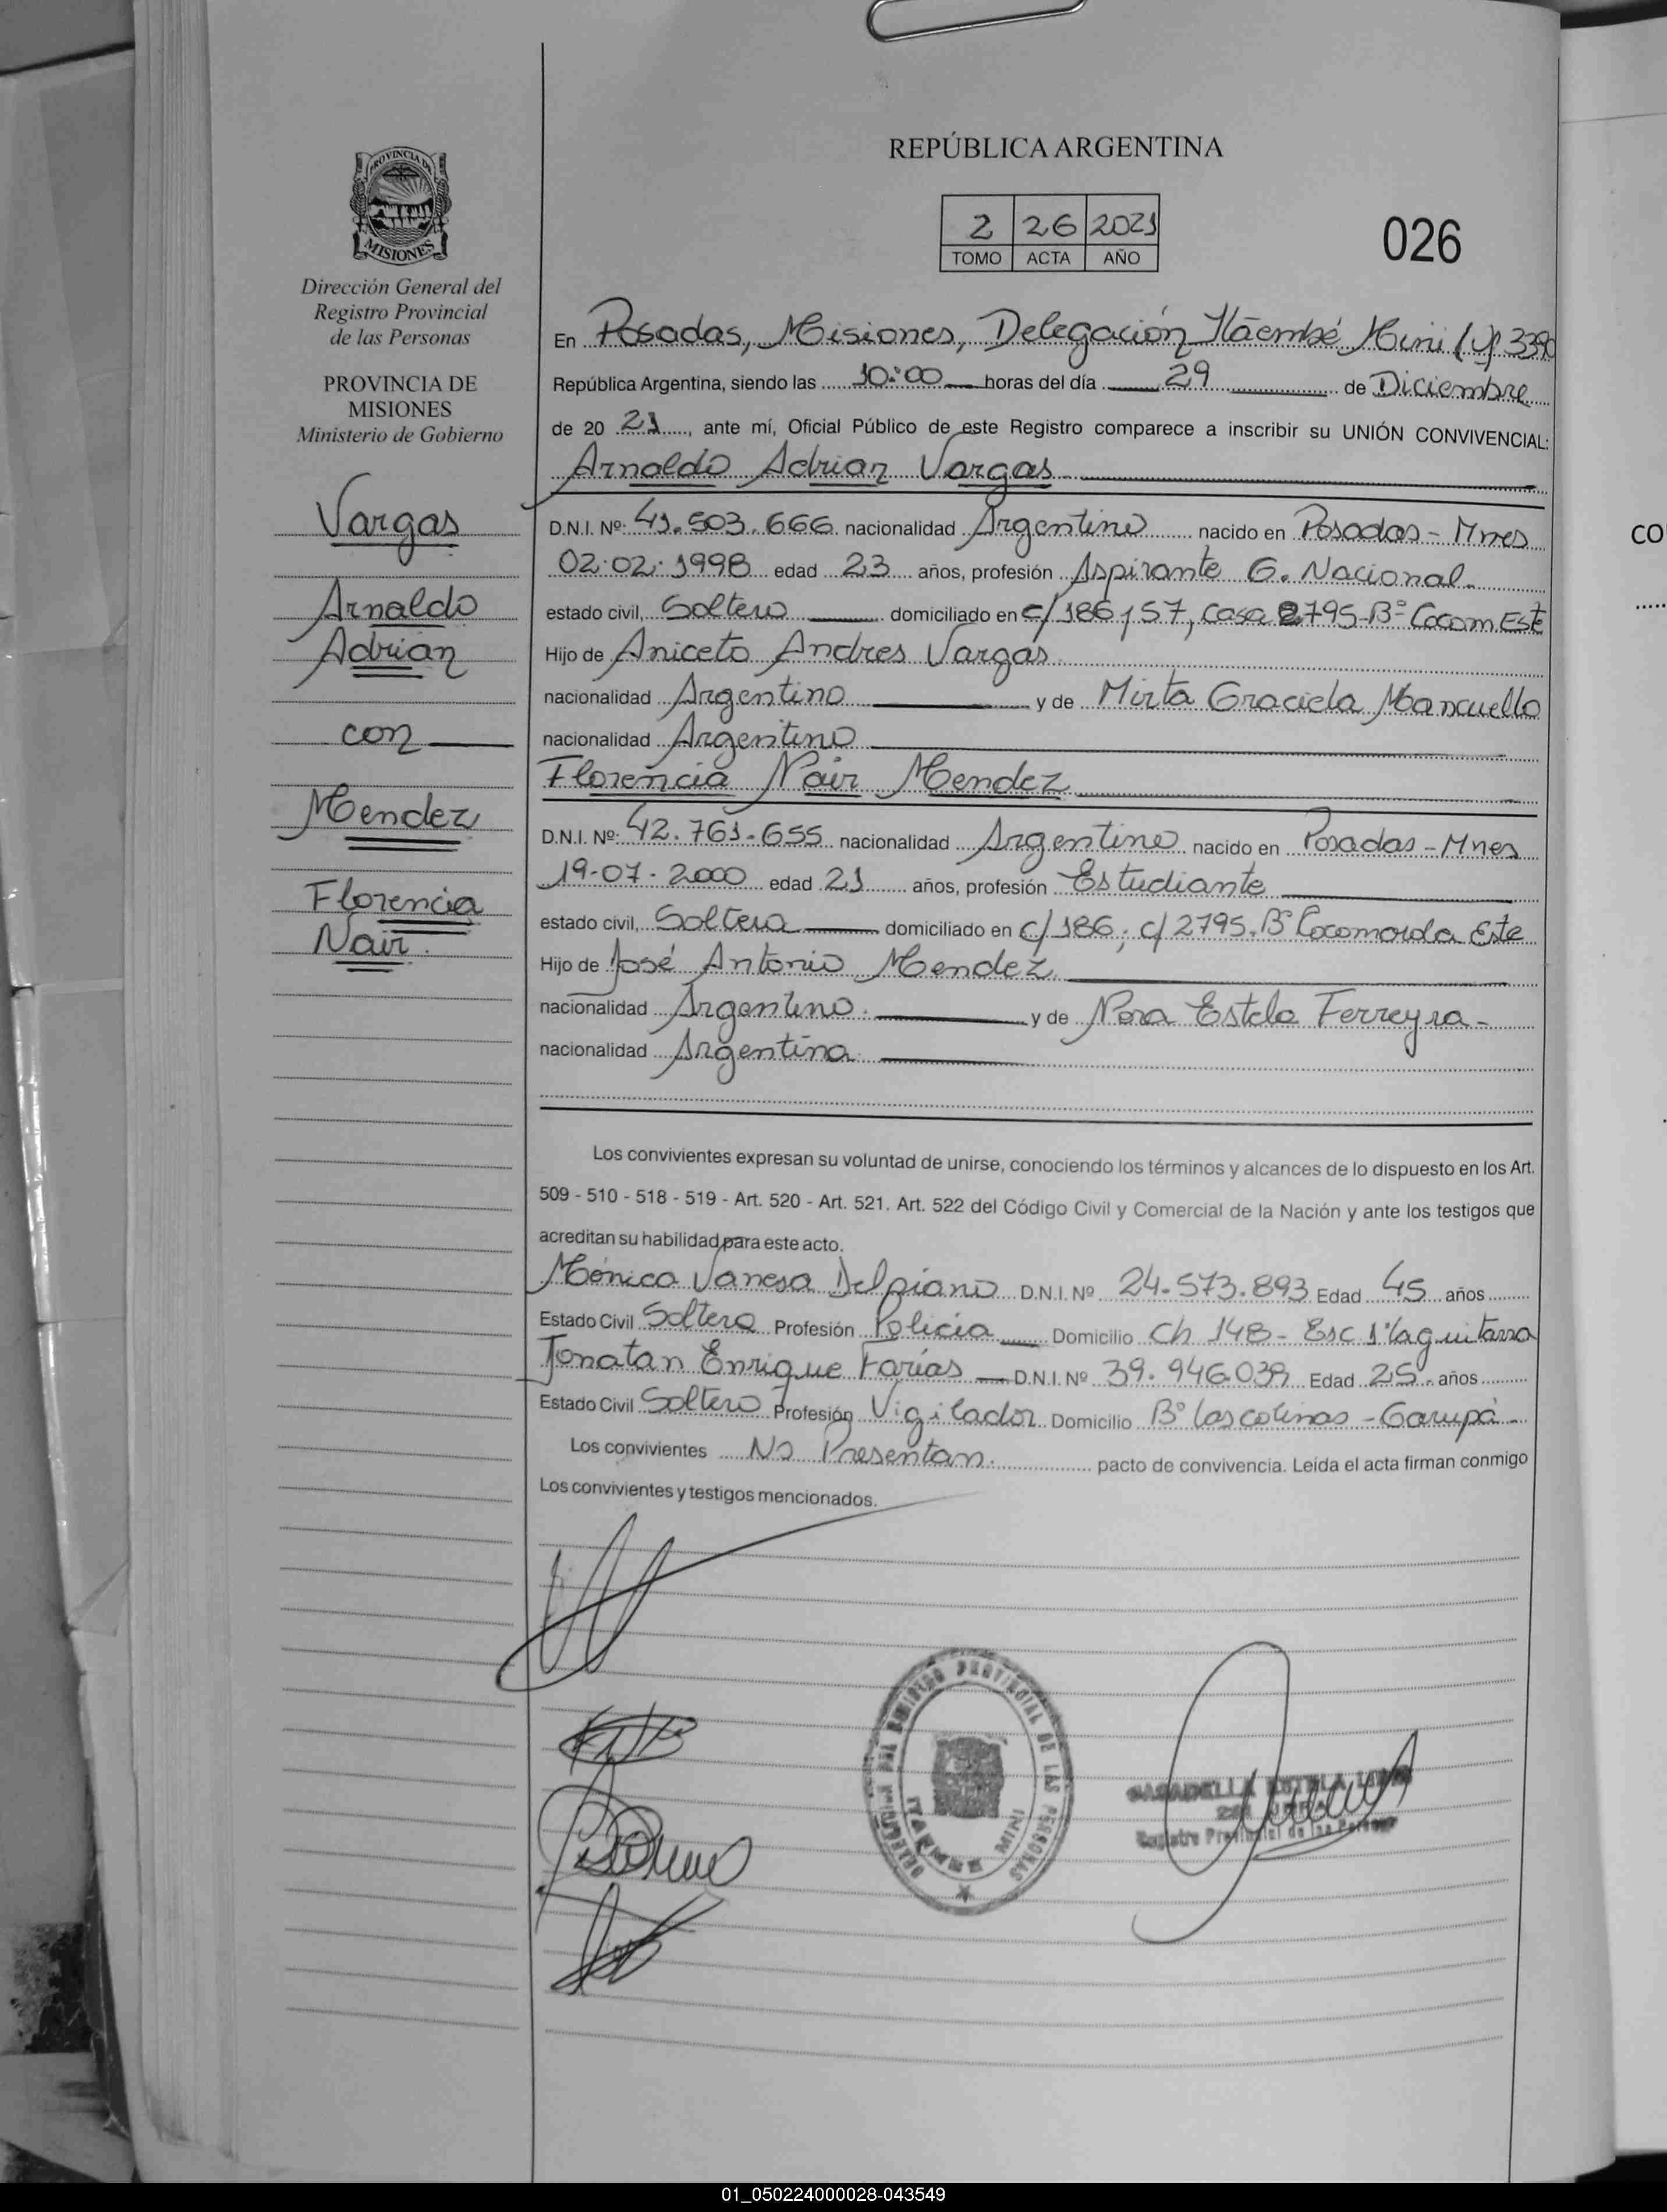 REPÚBLICA ARGENTINA
2 26 2021
TOMO ACTA AÑO
026
PROVINCIA DE
MISIONES
Dirección General del
Registro Provincial
de las Personas
PROVINCIA DE
MISIONES
Ministerio de Gobierno
Vargas
Arnaldo
Adrian
con
Mendez
Florencia
Nair.
En Posadas, Misiones, Delegación Itaembé Mini (U) 3390
República Argentina, siendo las 10:00 horas del día 29 de Diciembre
de 20 21, ante mí, Oficial Público de este Registro comparece a inscribir su UNIÓN CONVIVENCIAL:
Arnaldo Adrian Vargas
D.N.I. Nº: 41.503.666 nacionalidad Argentino nacido en Posadas - Mnes
02.02.1998 edad 23 años, profesión Aspirante G. Nacional.
estado civil, Soltero domiciliado en c/186 y 57, casa 2795-Bº Cocom. Este
Hijo de Aniceto Andres Vargas.
nacionalidad Argentino y de Mirta Graciela Mancuello
nacionalidad Argentino
Florencia Nair Mendez
D.N.I. Nº: 42.761.655 nacionalidad Argentino nacido en Posadas - Mnes
19-07-2000 edad 21 años, profesión Estudiante
estado civil, Soltera domiciliado en c/186, c/2795. Bº Cocomorola Este
Hijo de José Antonio Mendez
nacionalidad Argentino. y de Nora Estela Ferreyra -
nacionalidad Argentina.
Los convivientes expresan su voluntad de unirse, conociendo los términos y alcances de lo dispuesto en los Art.
509 - 510 - 518 - 519 - Art. 520 - Art. 521. Art. 522 del Código Civil y Comercial de la Nación y ante los testigos que
acreditan su habilidad para este acto.
Mónica Vanesa Delpiano D.N.I. Nº 24.573.893 Edad 45 años
Estado Civil Soltera Profesión Policia Domicilio Ch 148 - Esc
Jonatan Enrique Farías D.N.I. Nº 39.946.039 Edad 25. años
Estado Civil Soltero Profesión Vigilador Domicilio Bº las colinas - Garupá -
Los convivientes No Presentan. pacto de convivencia. Leída el acta firman conmigo
Los convivientes y testigos mencionados.
REGISTRO PROVINCIAL DE LAS PERSONAS
ITAEMBE MINI
Registro Provincial de las Personas
CO
01_050224000028-043549